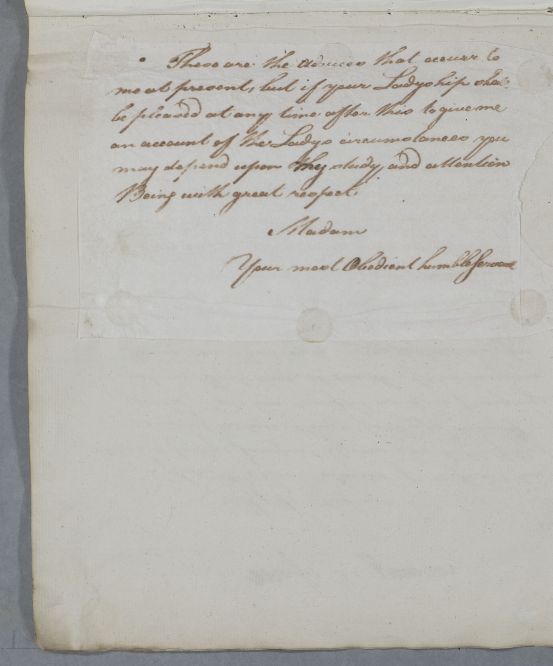 These are the advices that occurr to
me at present, but if your Ladyship shall
be pleased at any time after this to give me
an account of the Ladys circumstances you
may depend upon my study and attention
Being with great respect,
Madam
Your most Obedient humble Servant